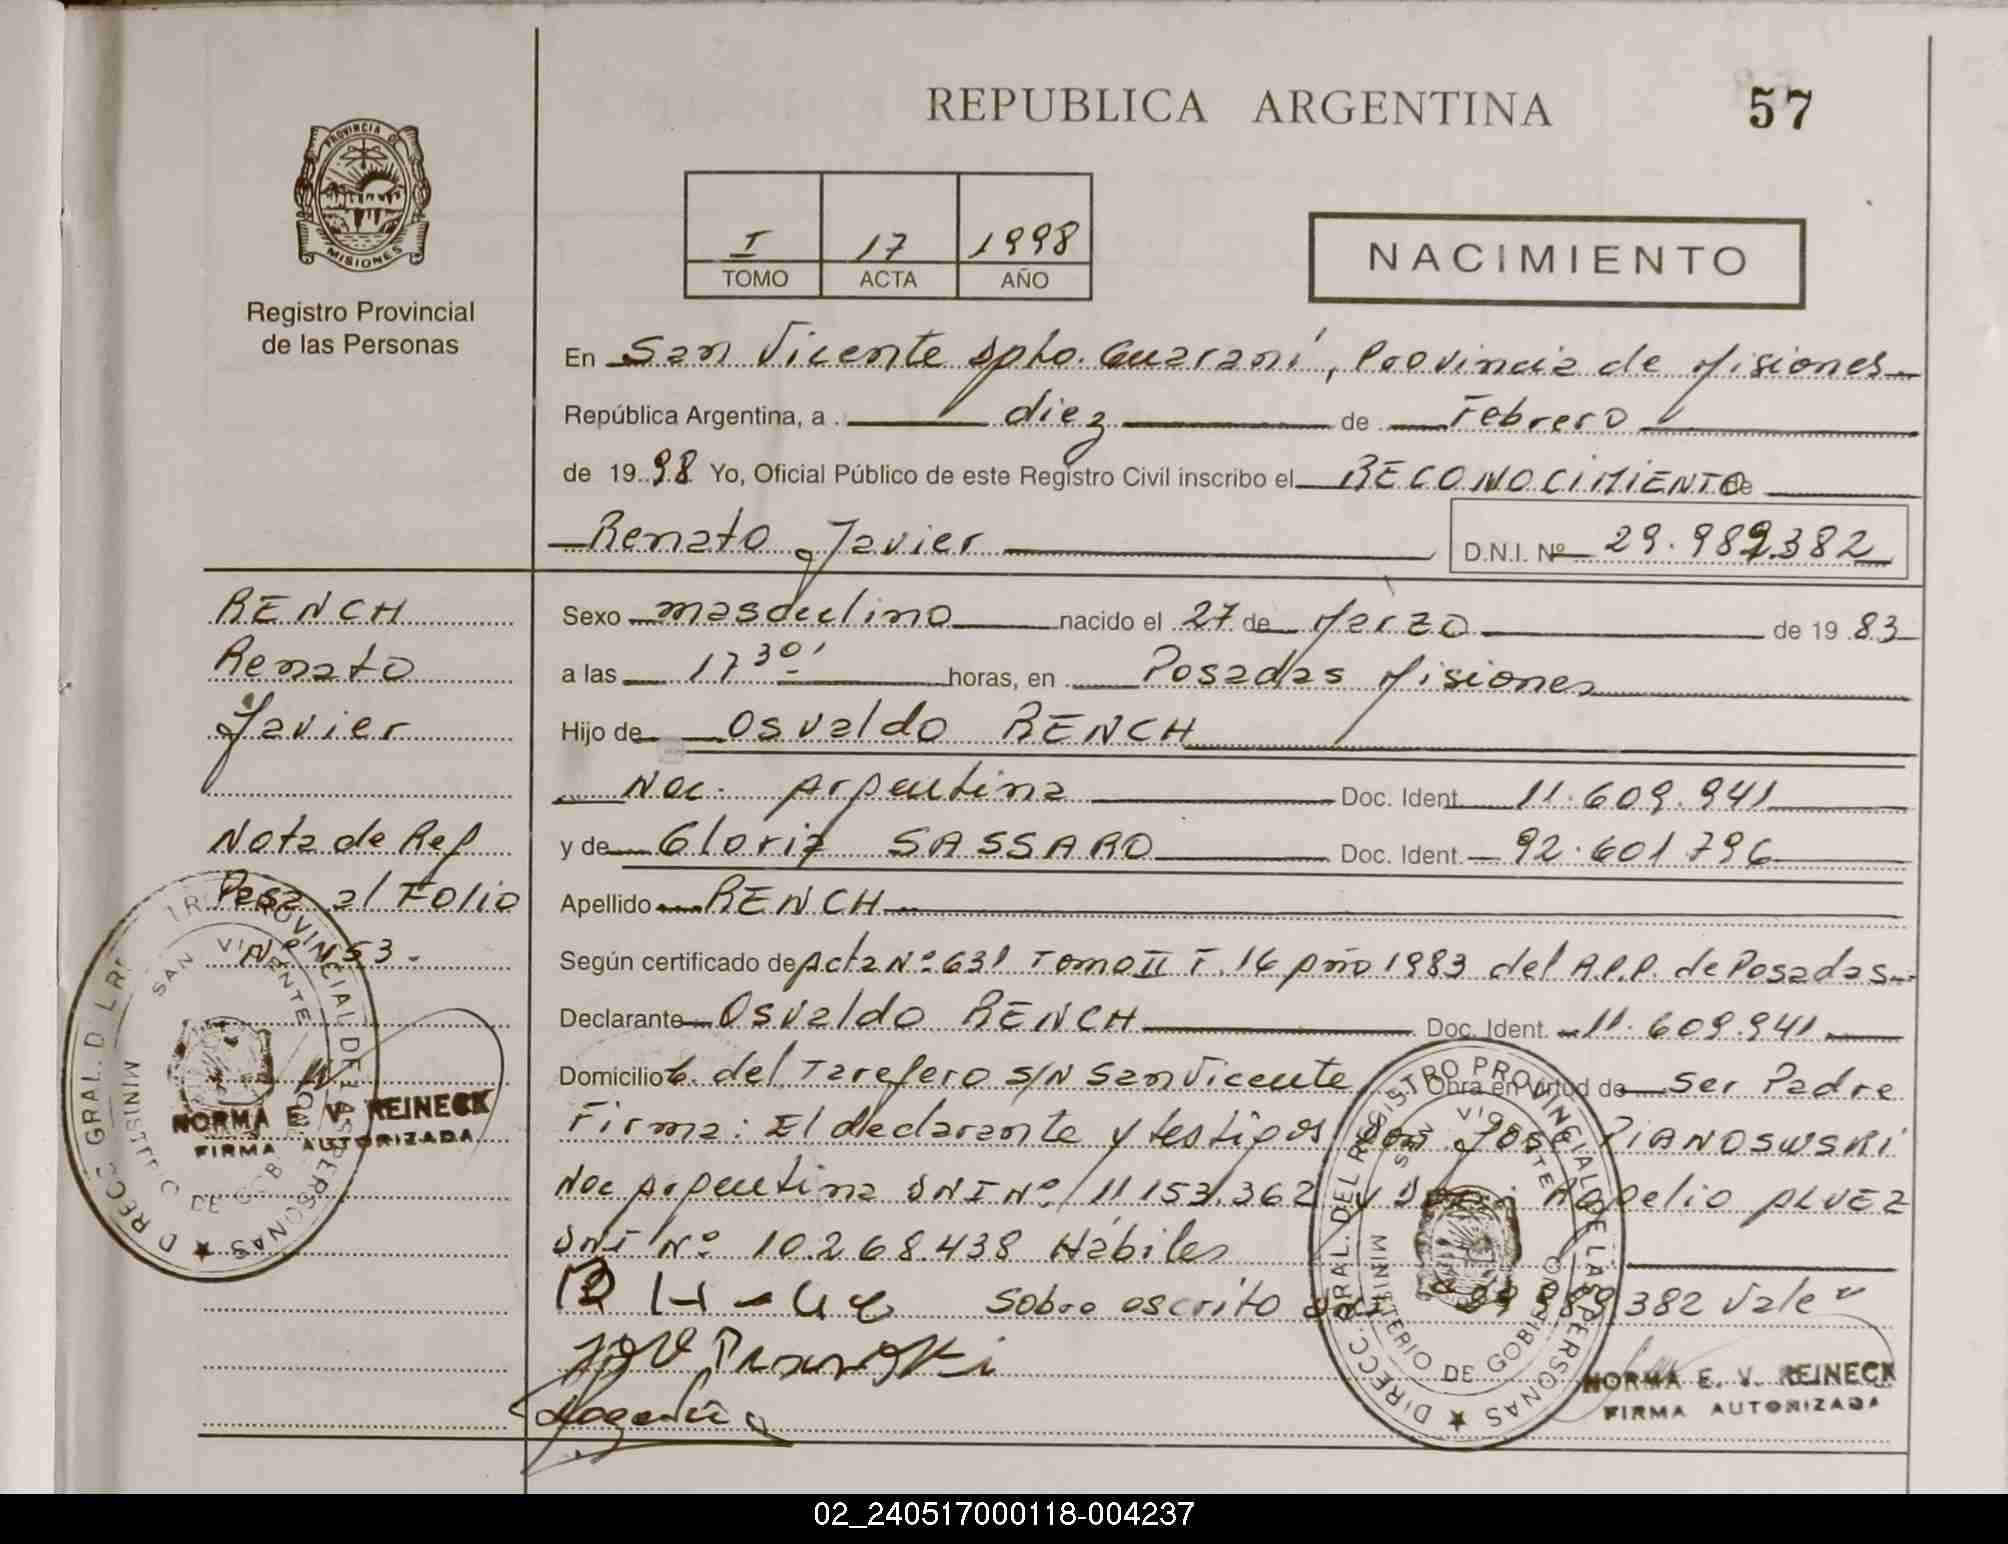 REPUBLICA ARGENTINA
57
PROVINCIA DE
MISIONES
Registro Provincial
de las Personas
I 17 1998
TOMO ACTA AÑO
NACIMIENTO
En San Vicente Dpto. Guaraní, Provincia de Misiones
República Argentina, a diez de Febrero
de 1998 Yo, Oficial Público de este Registro Civil inscribo el RECONOCIMIENTO de
Renato Javier D.N.I. Nº 29.989.382
RENCH
Renato
Javier
Nota de Ref
Pasa al Folio
Nº 153.
Sexo masculino nacido el 27 de Marzo de 1983
a las 17 30' horas, en Posadas Misiones
Hijo de Osvaldo RENCH
Nac. Argentina Doc. Ident. 11.609.941
y de Gloria SASSARO Doc. Ident. 92.601.796
Apellido RENCH
Según certificado de Acta Nº 631 Tomo II F. 16 Año 1983 del R.P.P. de Posadas
Declarante Osvaldo RENCH Doc. Ident. 11.609.941
Domicilio B. del Tarefero S/N San Vicente Obra en virtud de Ser Padre
Firma: El declarante y testigos Don José PIANOSWSKI
Nac Argentina DNI Nº 11153.362 y Don Rogelio ALVEZ
DNI Nº 10.268.438 Hábiles
Sobre escrito DNI 29.989.382 Vale
DIRECC. GRAL. DEL REGISTRO PROVINCIAL DE LAS PERSONAS
SAN VICENTE
MINISTERIO DE GOBIERNO
NORMA E. V. REINECK
FIRMA AUTORIZADA
DIRECC. GRAL. DEL REGISTRO PROVINCIAL DE LAS PERSONAS
SAN VICENTE
MINISTERIO DE GOBIERNO
NORMA E. V. REINECK
FIRMA AUTORIZADA
02_240517000118-004237